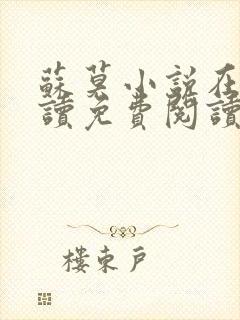 蘇莫小說在
讀免費閱讀
樓東戶